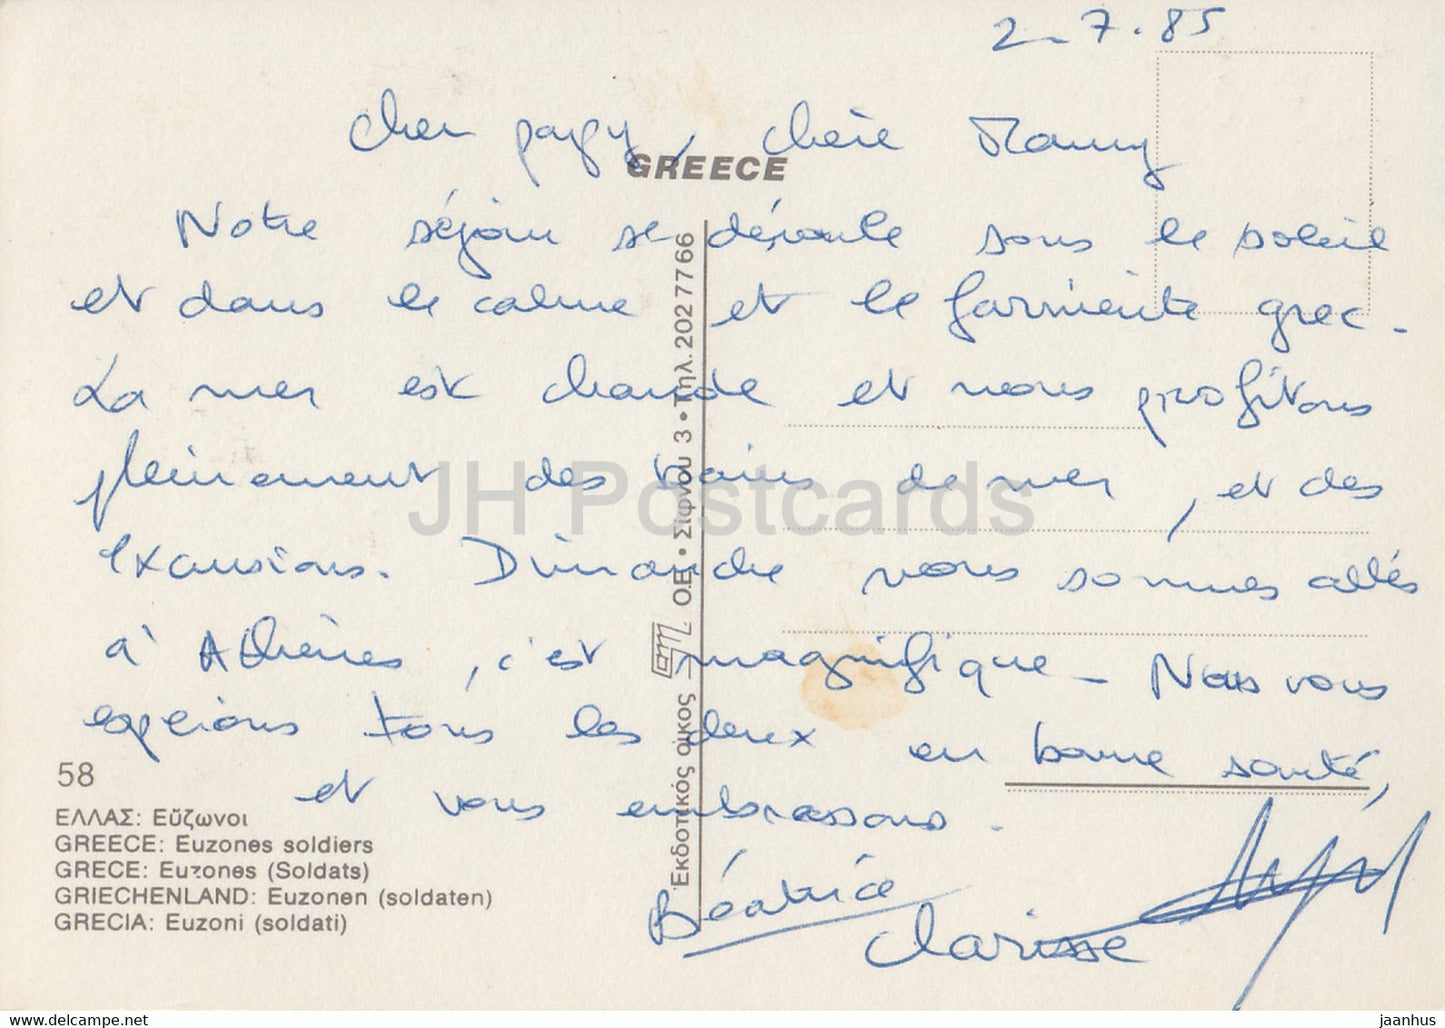 2-7.85
Cher papy, chère Mamy
GREECE
Notre séjour se déroule sous le soleil
et dans le calme et le farniente grec.
La mer est chaude et nous profitons
pleinement des bains de mer, et des
excursions. Dimanche nous sommes allés
à Athènes, c'est magnifique - Nous vous
espérons tous les deux en bonne santé,
et vous embrassons.
Béatrice
Clarisse
58
ΕΛΛΑΣ: Εὔζωνοι
GREECE: Euzones soldiers
GRECE: Euzones (Soldats)
GRIECHENLAND: Euzonen (soldaten)
GRECIA: Euzoni (soldati)
Ἐκδοτικός οἶκος Ο.Ε • Σίφνου 3 • Τηλ. 202 7766
JH Postcards
www.delcampe.net
jaanhus